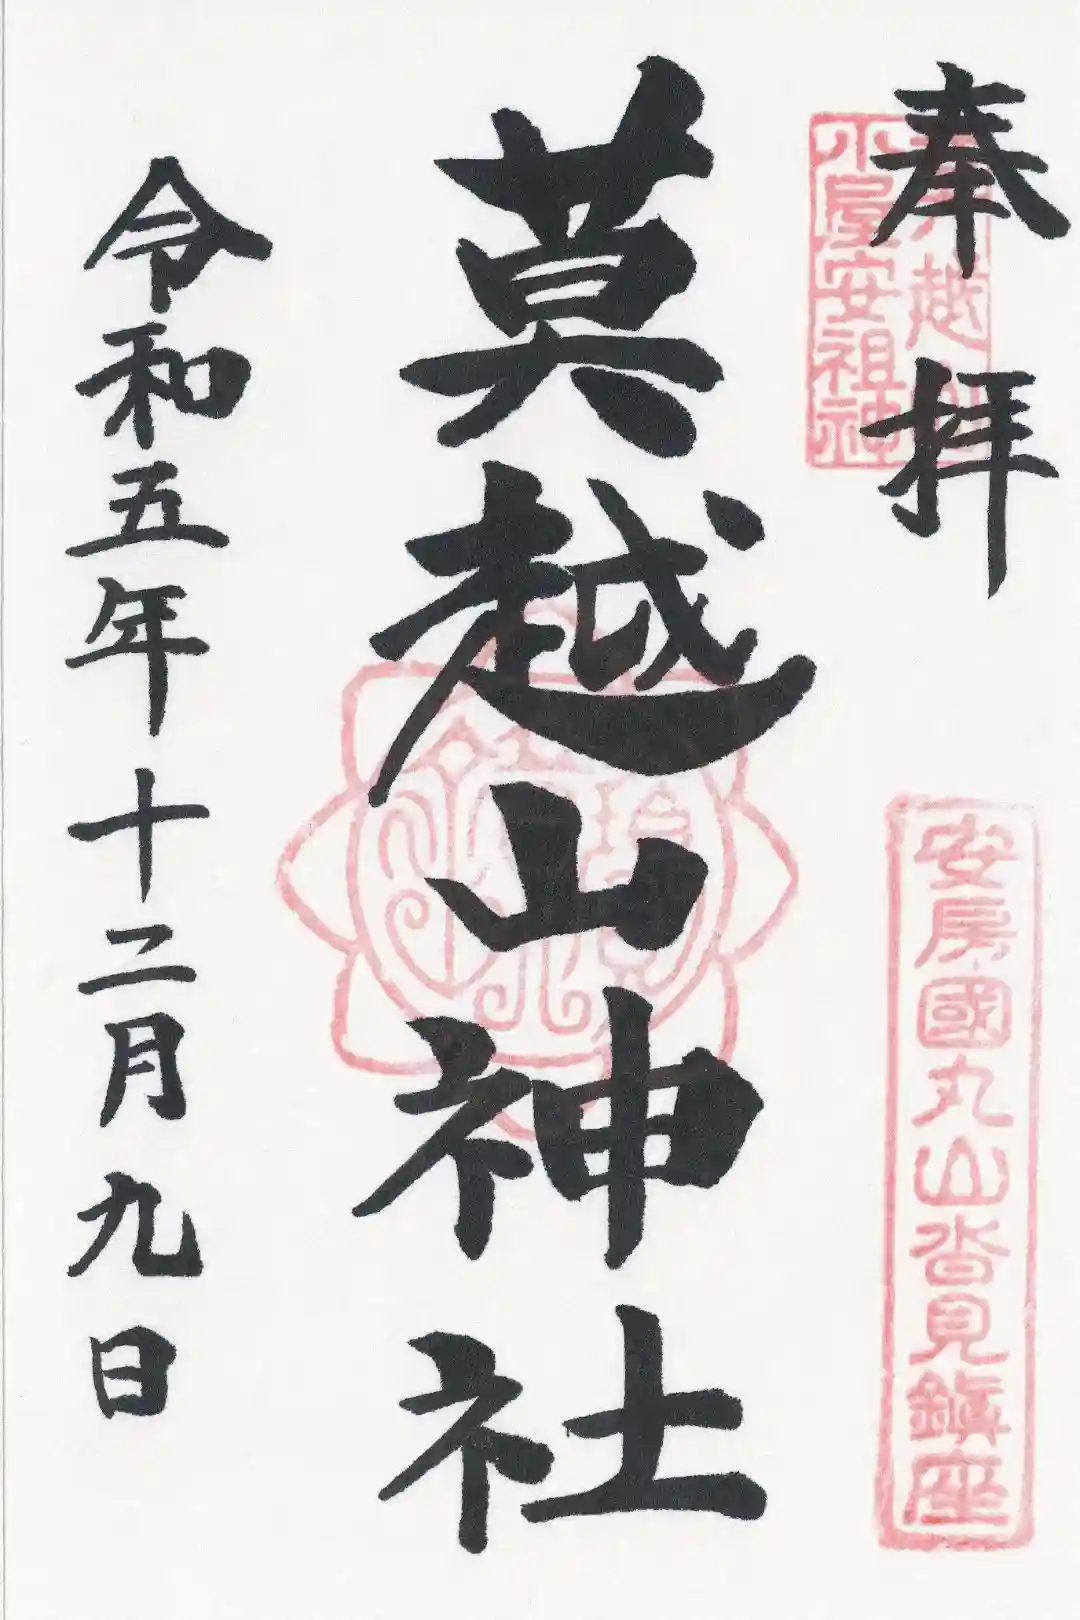 奉拝
小屋安祖神
安房國丸山沓見鎮座
莫越山神社
令和五年十二月九日